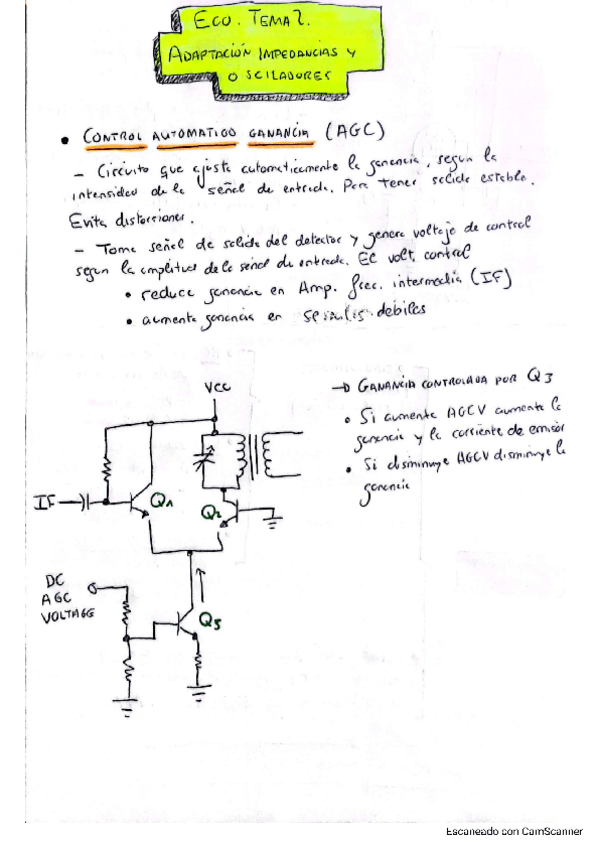 ECO. TEMA 2.
ADAPTACIÓN IMPEDANCIAS Y
OSCILADORES
• CONTROL AUTOMATICO GANANCIA (AGC)
- Circuito que ajusta automaticamente la ganancia, segun la
intensidad de la señal de entrada. Para tener salida estable.
Evita distorsiones.
- Toma señal de salida del detector y genera voltaje de control
segun la amplitud de la señal de entrada. El volt. control
• reduce ganancia en Amp. frec. intermedia (IF)
• aumenta ganancia en señales debiles
→ GANANCIA CONTROLADA POR Q3
• Si aumenta AGCV aumenta la
ganancia y la corriente de emisor
• Si disminuye AGCV disminuye la
ganancia
VCC
IF
Q1
Q2
DC
AGC
VOLTAGE
Q3
Escaneado con CamScanner